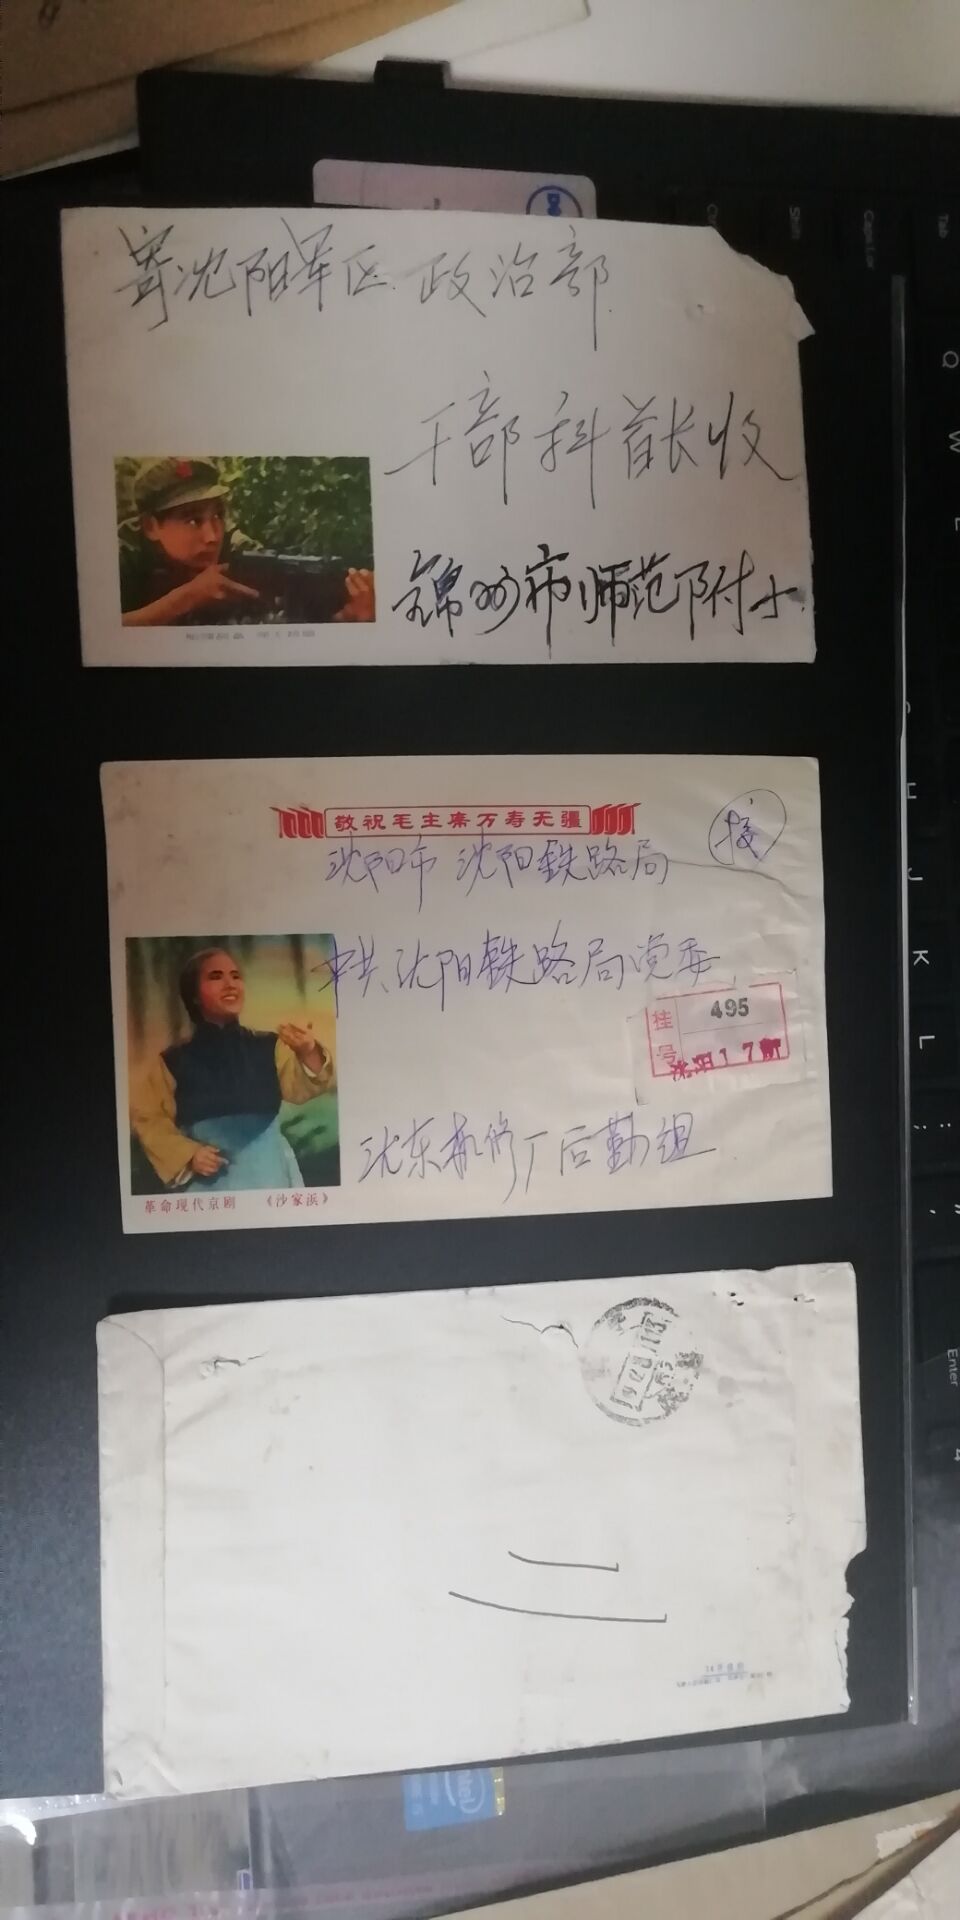 寄沈阳军区政治部
干部科首长收
锦州市师范附小
敬祝毛主席万寿无疆
沈阳市 沈阳铁路局
接
中共沈阳铁路局党委
挂号
495
沈阳17
沈东机修厂后勤组
革命现代京剧 《沙家浜》
Shift
Caps Lock
Tab
Q
W
E
H
J
K
L
Enter